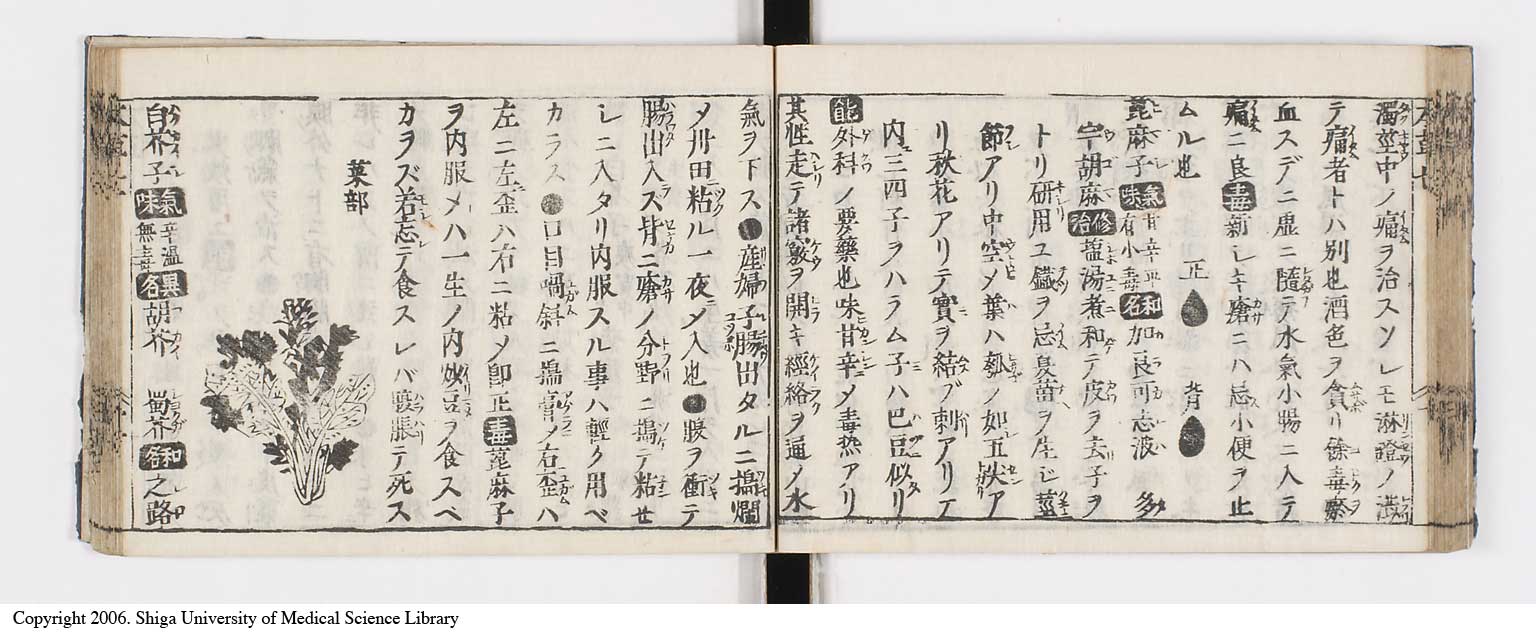 濁莖中ノ痛ヲ治スソレモ淋證ノ澁
テ痛者トハ别也酒色ヲ貪リ餘毒瘀
血スデニ虚ニ隨テ水氣小腸ニ入テ
痛ニ良毒新シキ瘡ニハ忌小便ヲ止
ムル也 正 背
萞麻子氣味甘辛平有小毒和名加良可志波 多
宇胡麻修治塩湯煮和テ皮ヲ去子ヲ
トリ研用ユ鐵ヲ忌夏苗ヲ生ジ莖
節アリ中空メ葉ハ瓠ノ如五

アリ秋花アリテ實ヲ結ブ刺アリテ
内三四子ヲハラム子ハ巴豆似リ
能外科ノ要藥也味甘辛メ毒热アリ
其性走テ諸竅ヲ開キ經絡ヲ通ノ水
氣ヲ下ス●産婦子腸出タルニ搗爛
メ丹田粘ル一夜メ入也●腹ヲ衝テ
腸出入ズ背ニ瘡ノ分野ニ搗テ粘セ
レニ入タリ内服スル事ハ輕ク用ベ
カラス●口目喎斜ニ搗膏ノ右歪ハ
左ニ左歪ハ右ニ粘メ卽正毒萞麻子
ヲ内服メハ一生ノ内炒豆ヲ食スベ
カラズ若忘テ食スレバ腹脹テ死ス
菜部
白芥子氣味辛温無毒異名胡芥 蜀芥和名之路
Copyright 2006. Shiga University of Medical Science Library